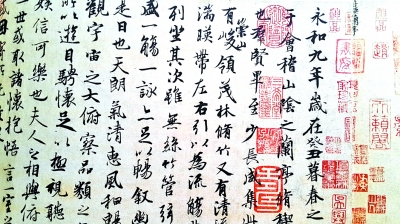 永和九年歲在癸丑暮春之
于會稽山陰之蘭亭脩稧
也羣賢畢至少長咸集此
有崇山峻領茂林脩竹又有清
湍暎帶左右引以為流觴
列坐其次雖無絲竹管弦
盛一觴一詠亦足以暢叙幽
是日也天朗氣清惠風和暢
觀宇宙之大俯察品類
所以遊目騁懷足以極視聽
娛信可樂也夫人之相與俯
一世或取諸懷抱悟言一室之